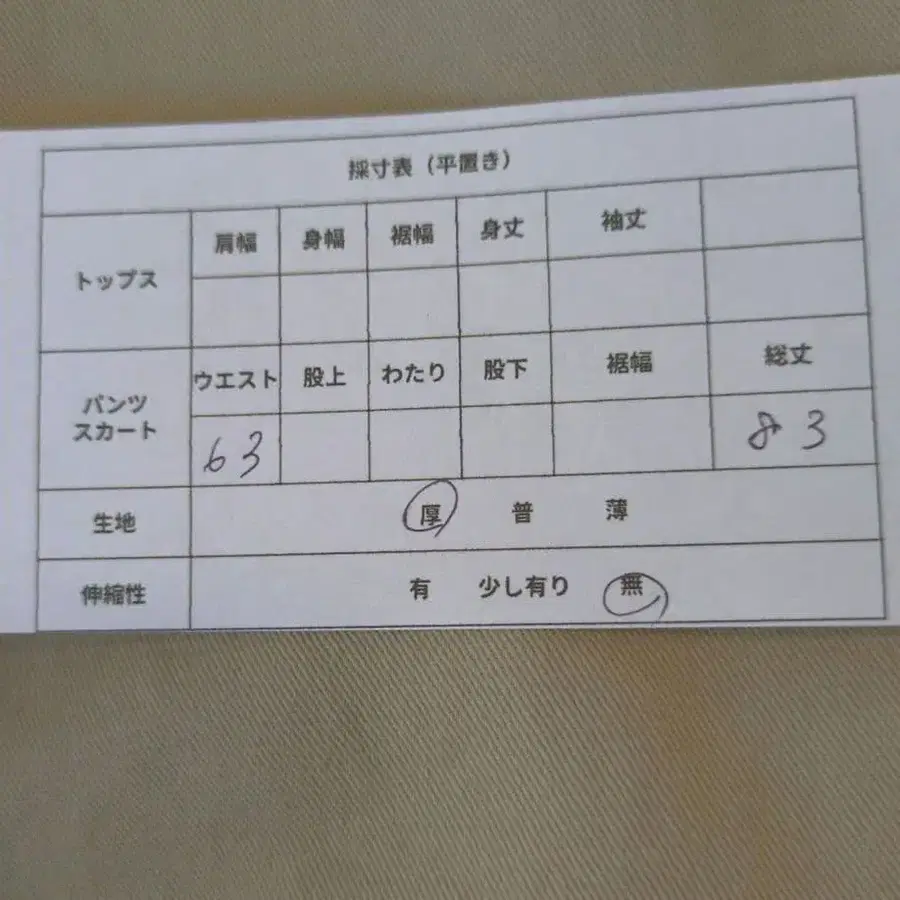 採寸表（平置き）
トップス 肩幅 身幅 裾幅 身丈 袖丈
パンツ スカート ウエスト 股上 わたり 股下 裾幅 総丈
63 83
生地 厚 普 薄
伸縮性 有 少し有り 無